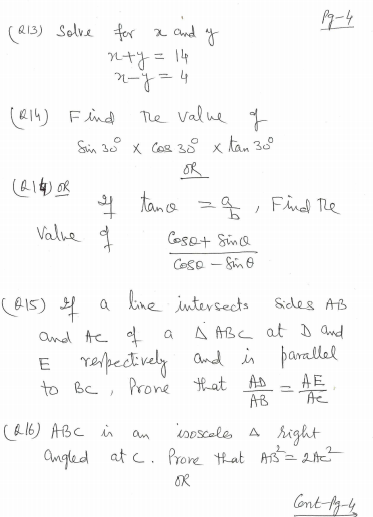 Pg-4
(Q13) Solve for x and y
x+y = 14
x-y = 4
(Q14) Find the value of
Sin 30° x Cos 30° x tan 30°
OR
(Q14) OR
If tanθ = a/b, Find the
Value of Cosθ + Sinθ / Cosθ - Sinθ
(Q15) If a line intersects sides AB
and AC of a Δ ABC at D and
E respectively and is parallel
to BC, Prove that AD/AB = AE/AC.
(Q16) ABC is an isosceles Δ right
angled at C. Prove that AB² = 2AC²
OR
Cont-Pg-4